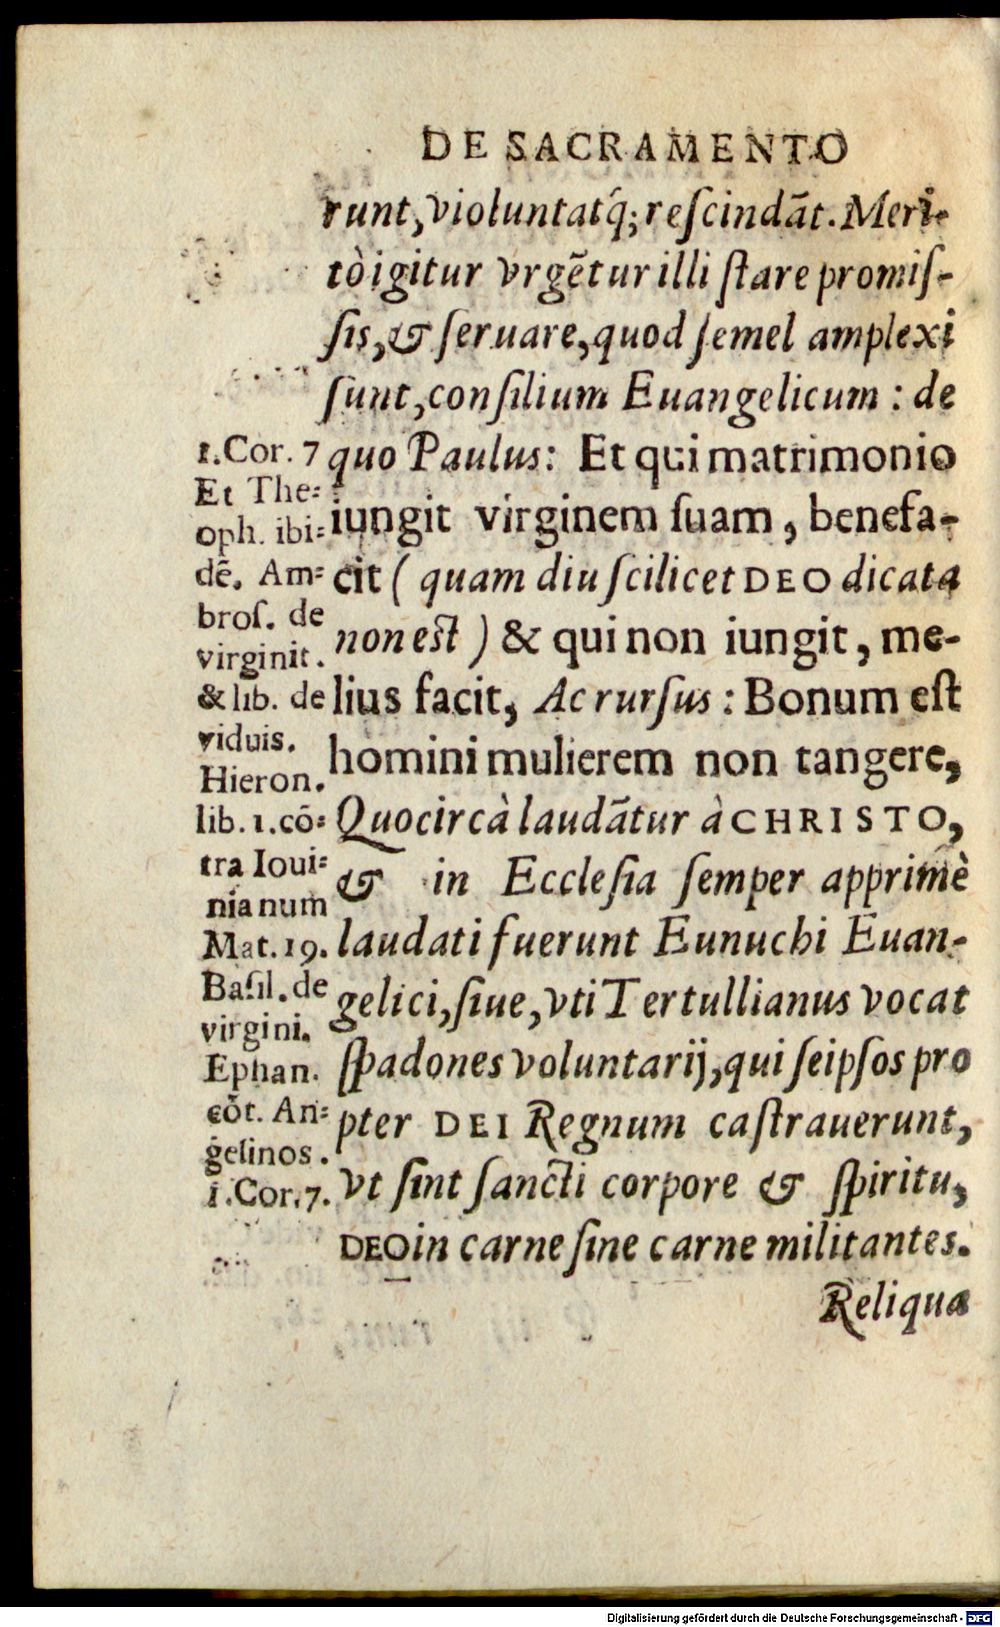 DE SACRAMENTO
runt, violuntatq́; reſcindãt. Meri-
tò igitur vrgẽtur illi ſtare promiſ-
ſis, & ſeruare, quod ſemel amplexi
ſunt, conſilium Euangelicum: de
quo Paulus: Et qui matrimonio
iungit virginem ſuam, benefa-
cit ( quam diu ſcilicet DEO dicata
non eſt ) & qui non iungit, me-
lius facit, Ac rurſus: Bonum eſt
homini mulierem non tangere,
Quocircà laudãtur à CHRISTO,
& in Eccleſia ſemper apprimè
laudati fuerunt Eunuchi Euan-
gelici, ſiue, vti Tertullianus vocat
ſpadones voluntarij, qui ſeipſos pro
pter DEI Regnum caſtrauerunt,
vt ſint ſancti corpore & ſpiritu,
DEO in carne ſine carne militantes.
Reliqua
1.Cor. 7
Et The=
oph. ibi=
dẽ. Am=
broſ. de
virginit.
& lib. de
viduis.
Hieron.
lib. 1. cõ=
tra Ioui=
nianum
Mat. 19.
Baſil. de
virgini.
Ephan.
cõt. An=
gelinos.
1.Cor. 7.
Digitalisierung gefördert durch die Deutsche Forschungsgemeinschaft - DFG